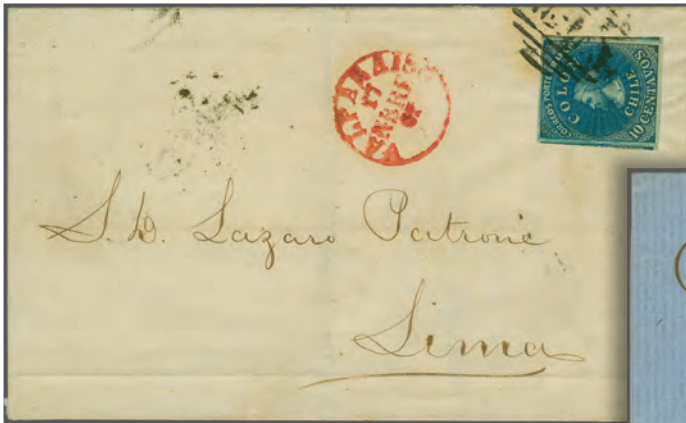 VALPARAISO
17
ENERO
CORREOS PORTE
COLON
CHILE
10 CENTAVOS
S. D. Lazaro Patroné
Lima